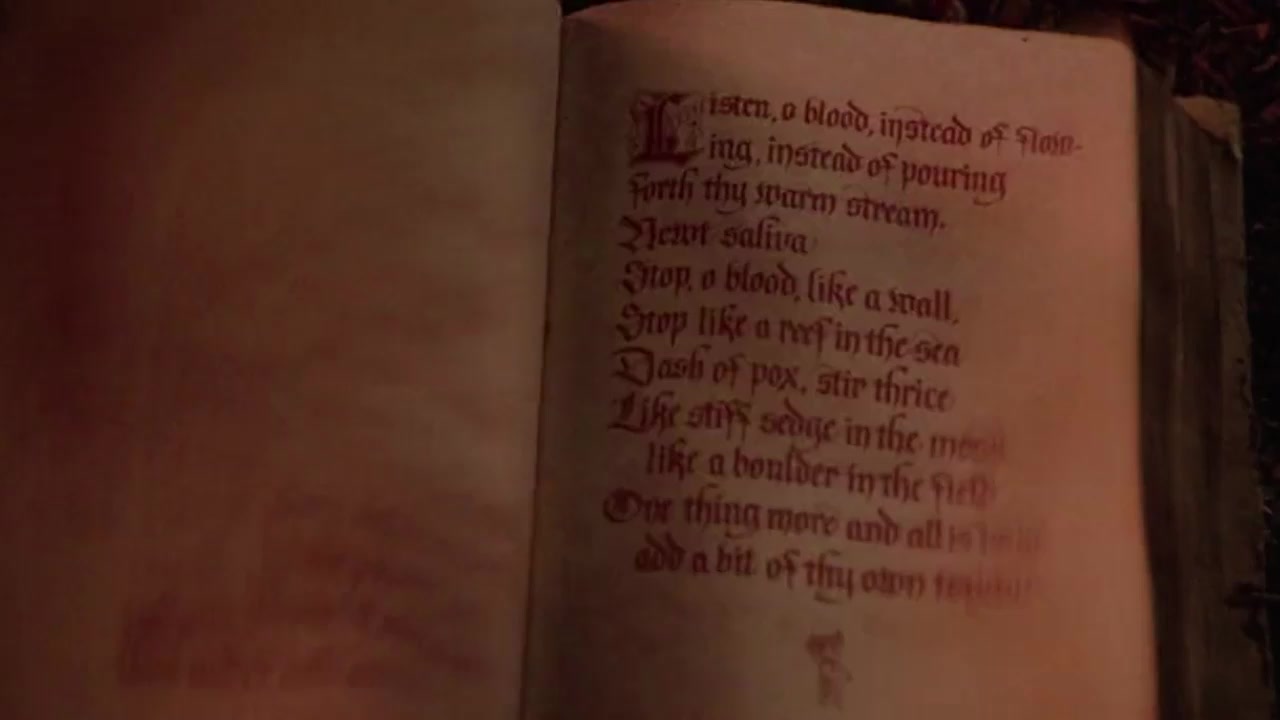 Listen, o blood, instead of flow-
ing, instead of pouring
forth thy warm stream.
Newt saliva
Stop, o blood, like a wall,
Stop like a reef in the sea
Dash of pox, stir thrice
Like stiff sedge in the
like a boulder in the field
One thing more and all is
add a bit of thy own